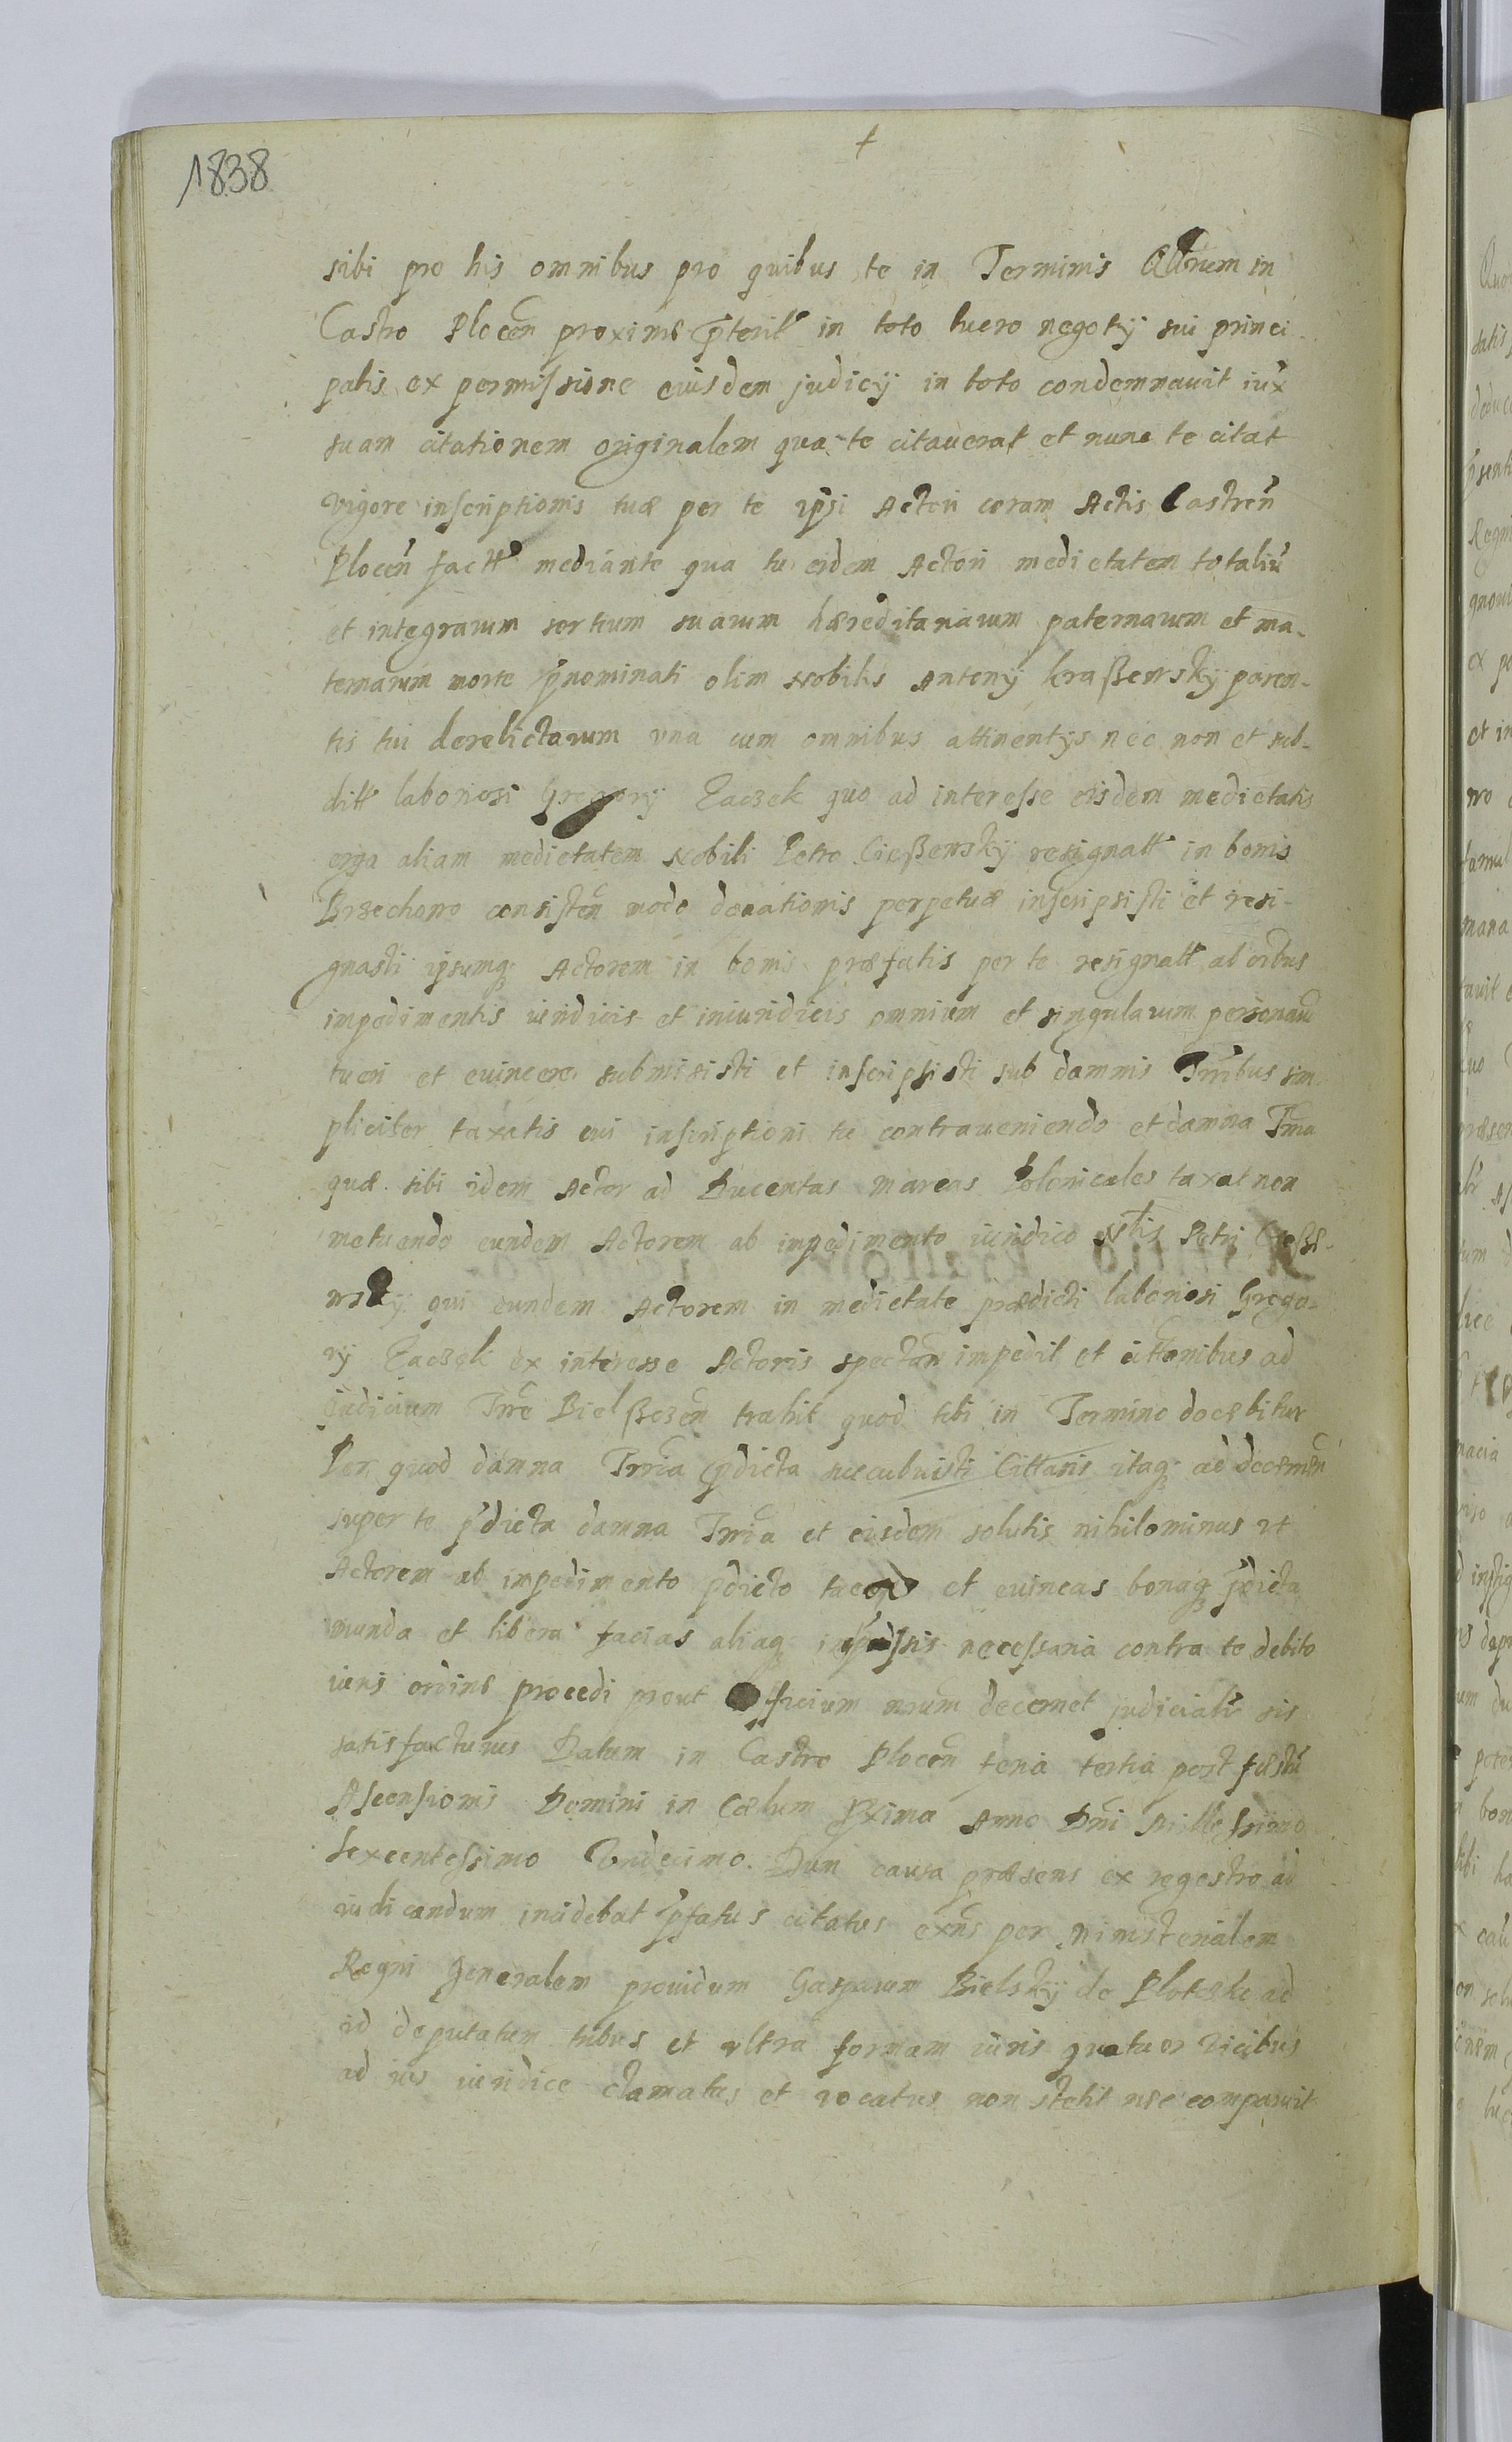 +
1838
sibi pro his omnibus pro quibus te in Terminis in
Castro Plocen̄ proxime p̄terit in toto lucro negotÿ sui princi-
palis ex permissione eiusdem judicÿ in toto condemnauit iux
suam citationem originalem qua te citauerat et nunc te citat
vigore inscriptionis tuæ per te ipsi Actori coram Actis Castren̄
Plocen̄ factt mediante qua tu eidem Actori medietatem totaliū
et integrarum sortium suarum hæreditariarum paternarum et ma-
ternarum morte p̄nominati olim Nobilis Antonÿ Kraßewskÿ paren-
tis tui derelictarum vna cum omnibus attinentÿs nec non et sub-
ditt laboriosi Gregorÿ Zaczek quo ad interesse eisdem medietatis
erga aliam medietatem Nobili Petro Cießewskÿ resignatt in bonis
Brzechowo consisten̄ modo donationis perpetuæ inscripsisti et resi-
gnasti ipsumq₃ Actorem in bonis præfatis per te resignatt ab oībus
impedimentis iuridicis et iniuridicis omnium et singularum personarū
tueri et euincere submisisti et inscripsisti sub damnis Trrībus sim-
pliciter taxatis cui inscriptioni tu contraueniendo et damna Trria
quæ sibi idem Actor ad Ducentas marcas Polonicales taxat non
metuendo eundem Actorem ab impedimento iuridico Nblis Petri Cieße-
wskÿ qui eundem Actorem in medietate prædicti laboriosi Grego-
rÿ Zaczek ex interesse Actoris spectan̄ impedit et cittōnibus ad
iudicium Trre Bielßczen̄ trahit quod tibi in Termino docebitur
Per quod damna Trria p̄dicta succubuisti Cittaris itaq₃ ad
super te p̄dicta damna Trria et eisdem solutis nihilominus vt
Actorem ab impedimento p̄dicto et euincas bonaq₃ p̄dicta
munda et libera facias aliaq₃ in p̄missis necessaria contra te debito
iuris ordine procedi prout officium nrum decernet judicialr̄ sis
satisfacturus Datum in Castro Plocen̄ feria tertia post festū
Ascensionis Domini in Cælum p̄xima Anno Dnī Millesimo
Sexcentessimo Vndecimo. Dum causa præsens ex regestro ad
iudicandum incidebat p̄fatus citatus exn̄s per Ministerialem
Regni Generalem prouidum Gasparum Bielskÿ de Plotsko ad
id deputatum tribus et vltra formam iuris quatuor vicibus
ad ius iuridice clamatus et vocatus non stetit nec comparuit